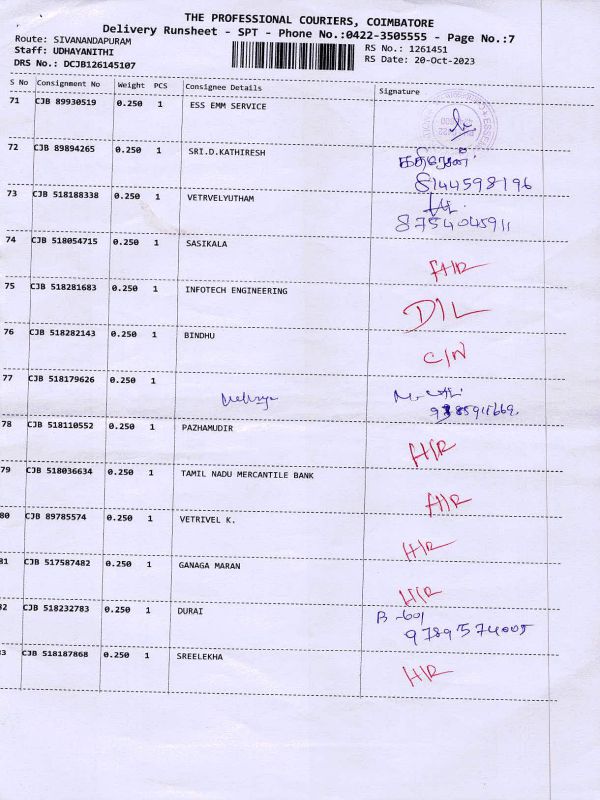 THE PROFESSIONAL COURIERS, COIMBATORE
Delivery Runsheet - SPT - Phone No.:0422-3505555 - Page No.:7
Route: SIVANANDAPURAM
RS No.: 1261451
Staff: UDHAYANITHI
RS Date: 20-Oct-2023
DRS No.: DCJB126145107
S No Consignment No Weight PCS Consignee Details Signature
71 CJB 89930519 0.250 1 ESS EMM SERVICE
72 CJB 89894265 0.250 1 SRI.D.KATHIRESH கதிரேஸ்
8144598196
73 CJB 518188338 0.250 1 VETRVELYUTHAM
8754045911
74 CJB 518054715 0.250 1 SASIKALA H/R
75 CJB 518281683 0.250 1 INFOTECH ENGINEERING D/L
76 CJB 518282143 0.250 1 BINDHU C/N
77 CJB 518179626 0.250 1
78 CJB 518110552 0.250 1 PAZHAMUDIR H/R
79 CJB 518036634 0.250 1 TAMIL NADU MERCANTILE BANK H/R
80 CJB 89785574 0.250 1 VETRIVEL K. H/R
81 CJB 517587482 0.250 1 GANAGA MARAN H/R
82 CJB 518232783 0.250 1 DURAI B-601
9789574005
83 CJB 518187868 0.250 1 SREELEKHA H/R